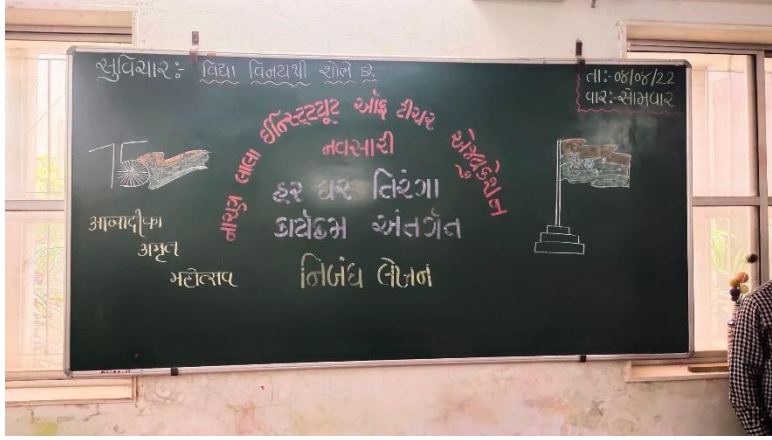 સુવિચાર:- વિદ્યા વિનયથી શોભે છે.
તા:-૦૪/૦૮/૨૨
વાર:-સોમવાર
નારણ લાલા ઈન્સ્ટિટયૂટ ઓફ ટીચર એજ્યુકેશન
નવસારી
75
હર ઘર તિરંગા
કાર્યક્રમ અંતર્ગત
आजादीका
अमृत
महोत्सव
નિબંધ લેખન